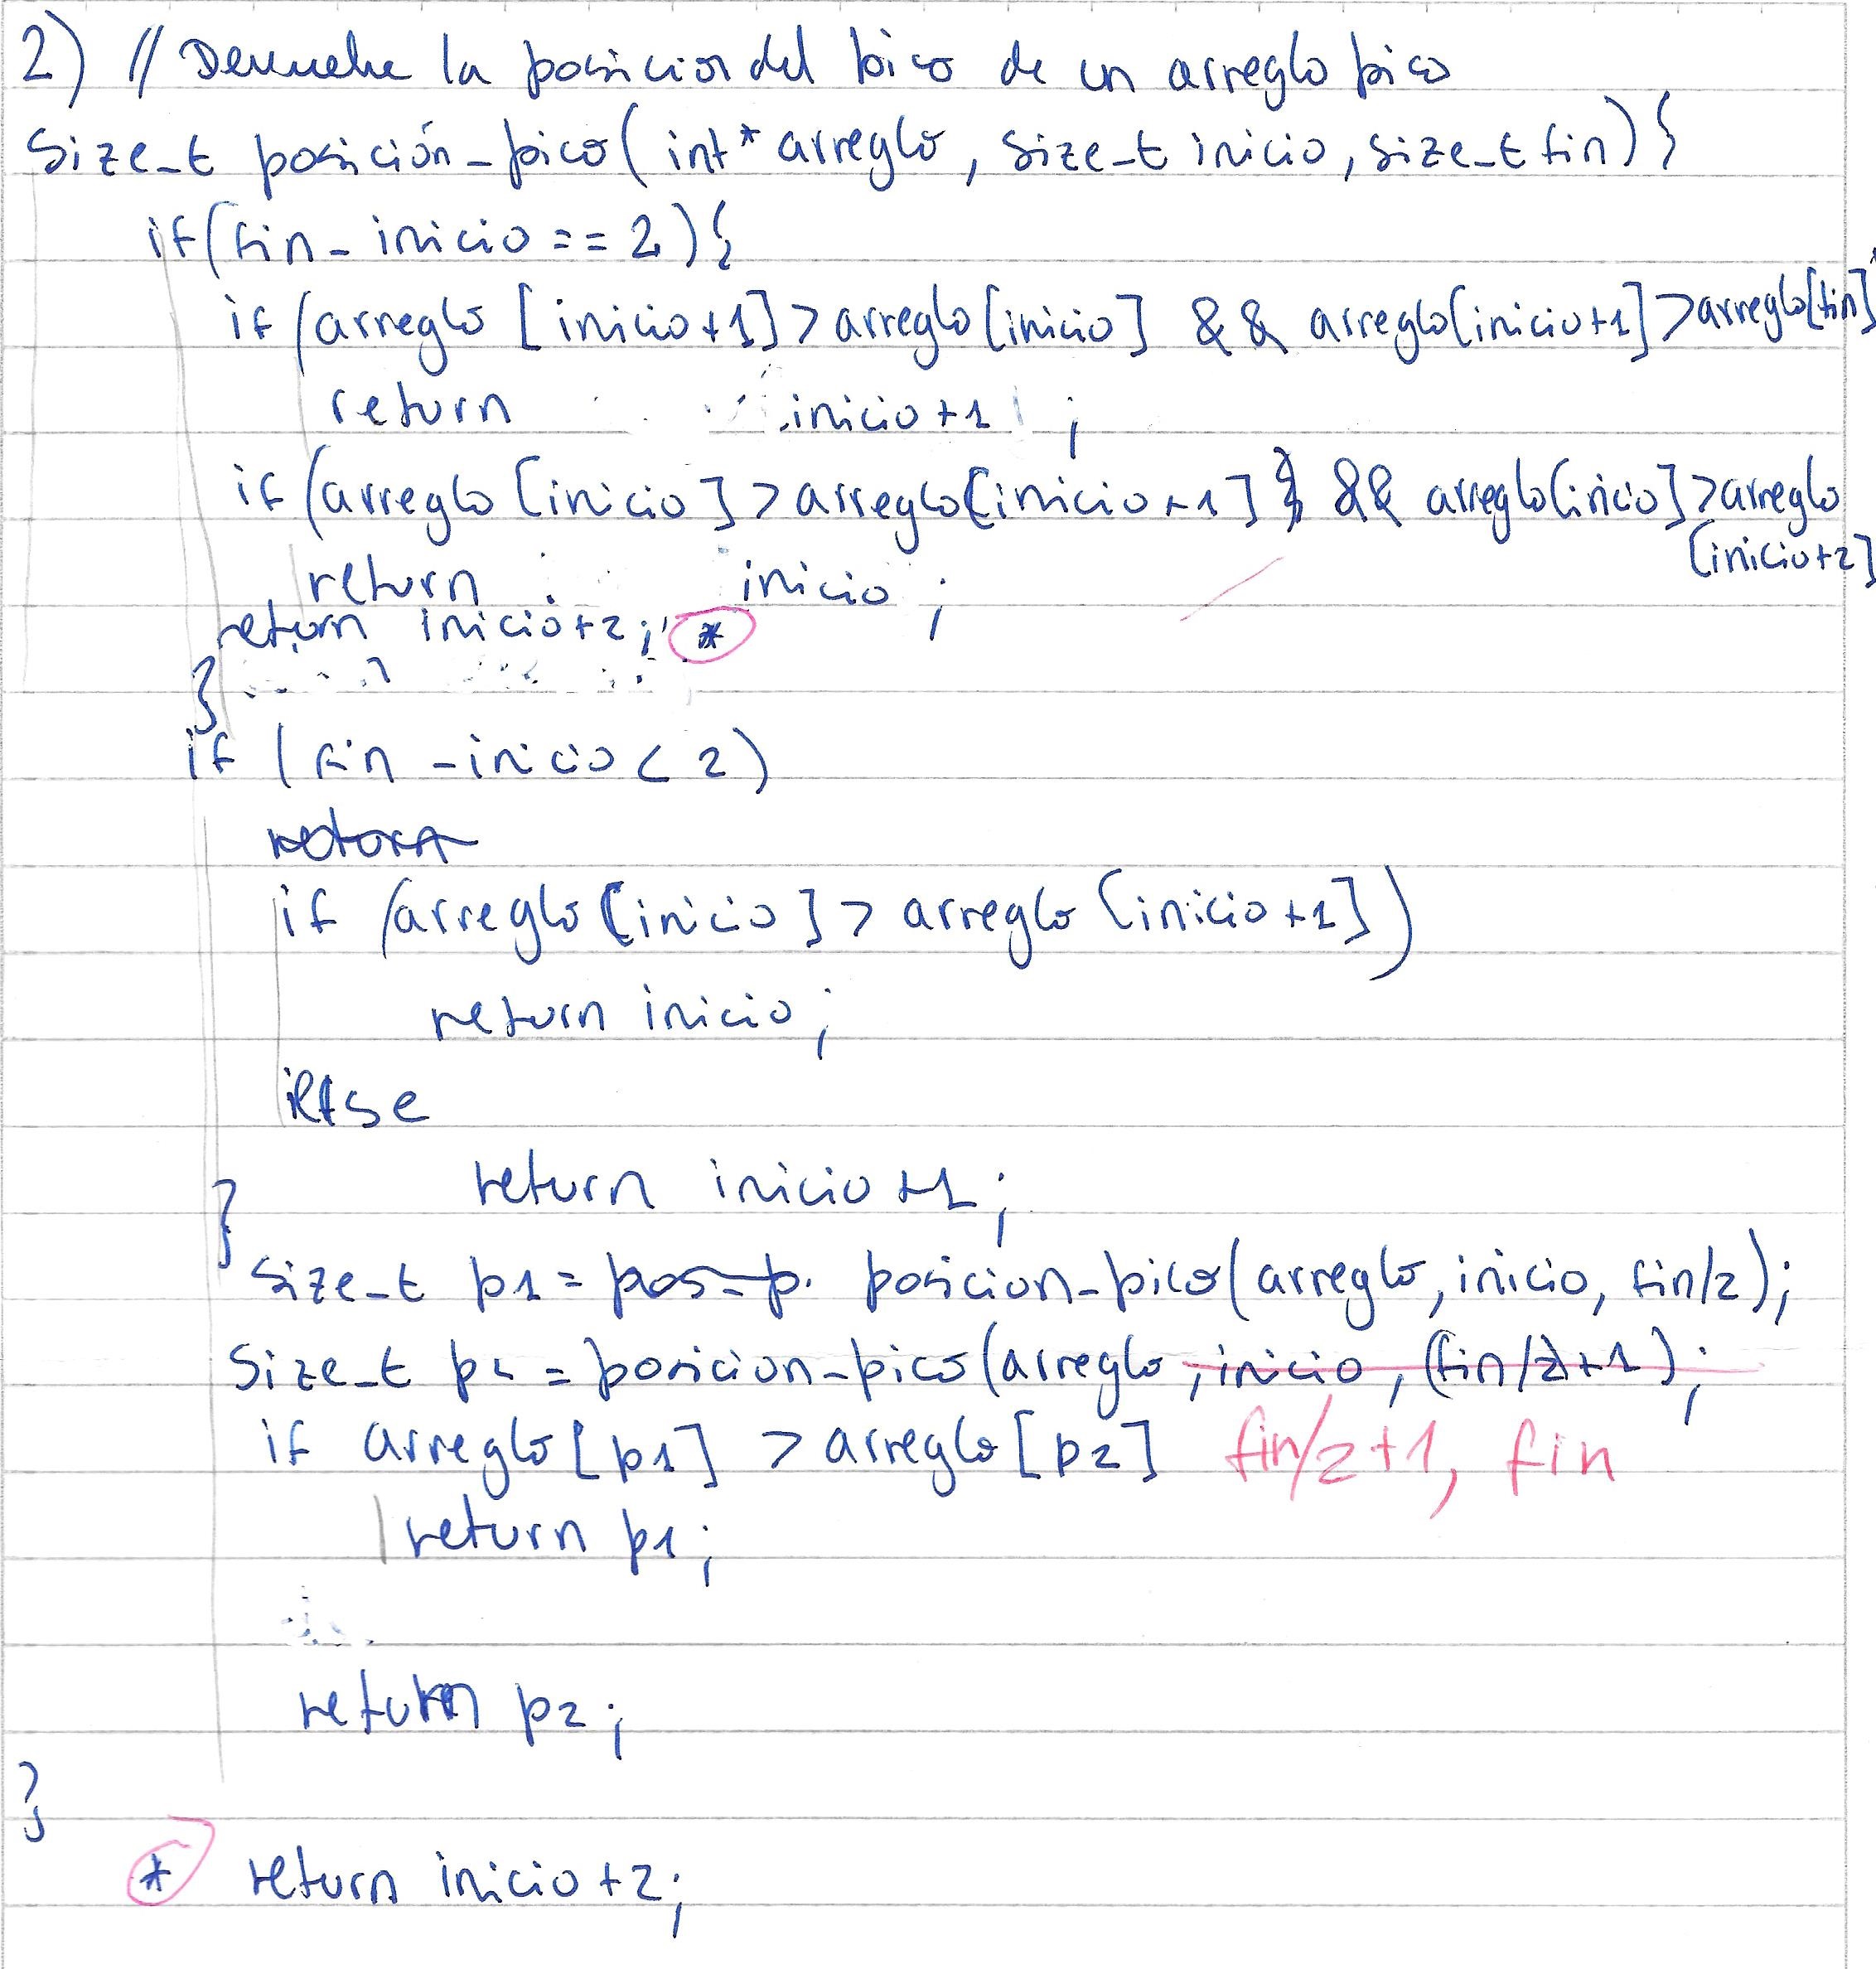 2) // Devuelve la posicion del pico de un arreglo pico
size_t posición_pico(int* arreglo, size_t inicio, size_t fin){
if(fin - inicio == 2){
if (arreglo [inicio+1] > arreglo[inicio] && arreglo[inicio+1] > arreglo[fin]
return inicio+1;
if (arreglo [inicio] > arreglo[inicio+1] && arreglo[inicio] > arreglo
[inicio+2]
return inicio;
return inicio+2; *
}
if (fin - inicio < 2)
return
if (arreglo [inicio] > arreglo [inicio+1])
return inicio;
else
return inicio+1;
}
size_t p1 = pos_p. posicion_pico(arreglo, inicio, fin/2);
size_t p2 = posicion_pico(arreglo, inicio, (fin/2)+1);
if arreglo[p1] > arreglo[p2] fin/2+1, fin
return p1;
return p2;
}
* return inicio+2;